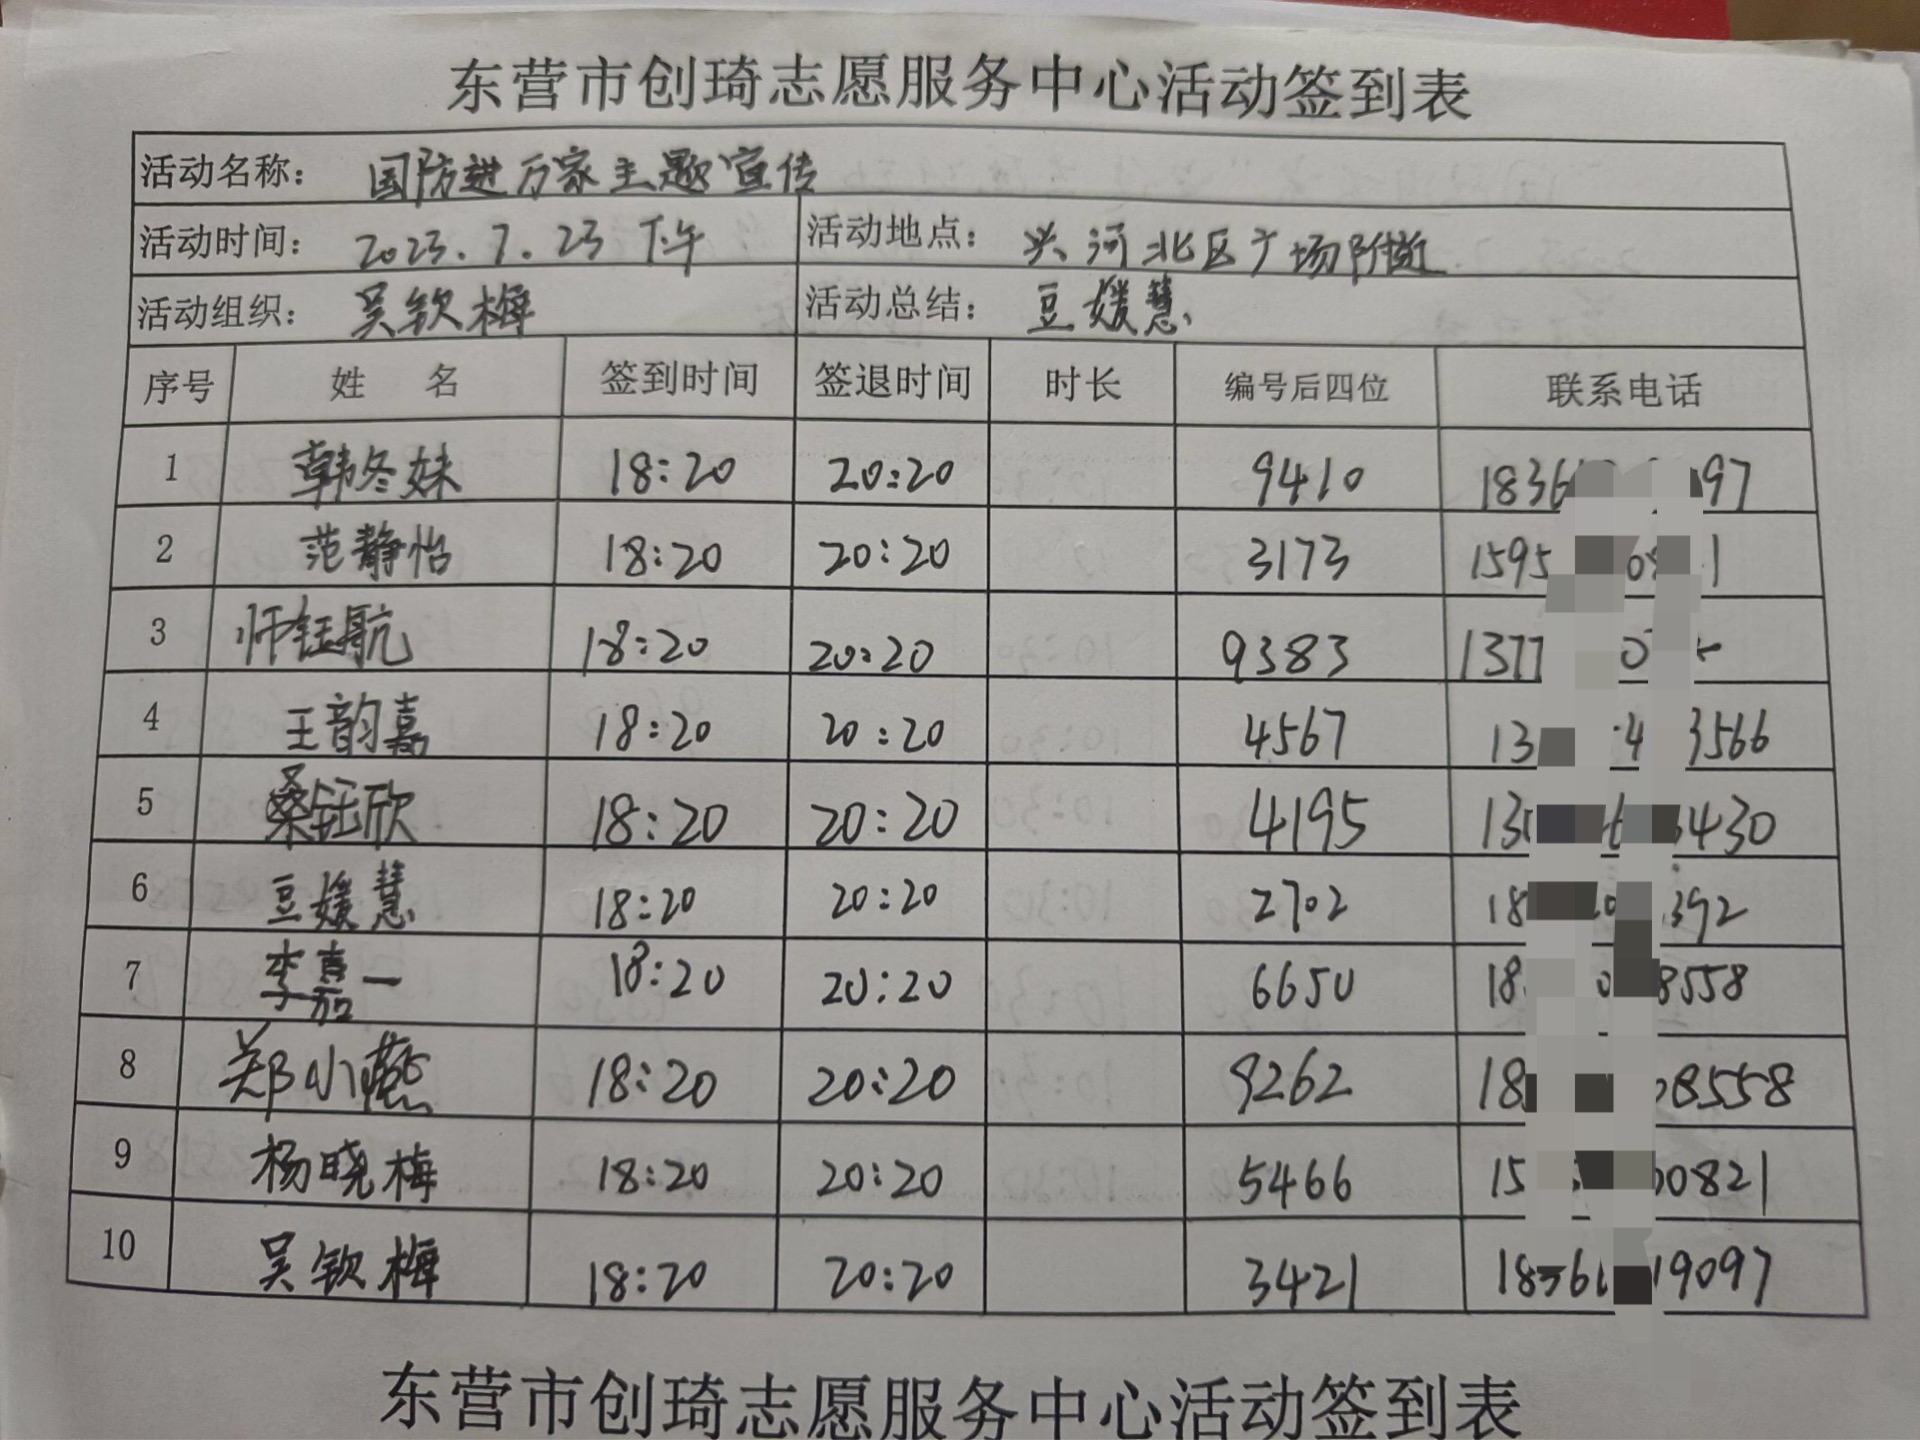 东营市创琦志愿服务中心活动签到表
活动名称： 国防进万家主题宣传
活动时间： 2023.7.23 下午 活动地点： 兴河北区广场附近
活动组织： 吴钦梅 活动总结： 豆媛慧
序号 姓 名 签到时间 签退时间 时长 编号后四位 联系电话
1 韩冬妹 18:20 20:20 9410 1836 97
2 范静怡 18:20 20:20 3173 1595 1
3 师钰航 18:20 20:20 9383 1377
4 王韵嘉 18:20 20:20 4567 13 4 3566
5 桑钰欣 18:20 20:20 4195 13 430
6 豆媛慧 18:20 20:20 2702 18 392
7 李嘉一 18:20 20:20 6650 18 8558
8 郑小燕 18:20 20:20 9262 18 8558
9 杨晓梅 18:20 20:20 5466 15 0821
10 吴钦梅 18:20 20:20 3421 1836 19097
东营市创琦志愿服务中心活动签到表